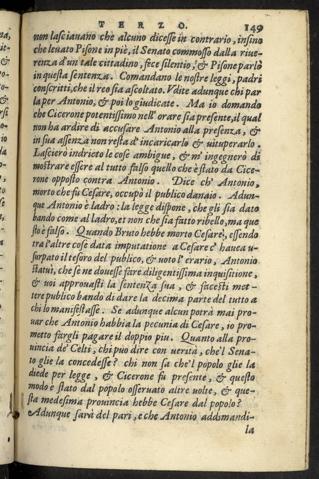 TERZO. 149
non lasciauano che alcuno dicesse in contrario, insino
che leuato Pisone in piè, il Senato commosso dalla riue-
renza d'un tale cittadino, fece silentio, & Pisone parlò
in questa sentenza. Comandano le nostre leggi, padri
conscritti, che il reo sia ascoltato. Vdite adunque chi par
la per Antonio, & poi lo giudicate. Ma io domando
che Cicerone potentissimo nell'orare sia presente, il qual
non ha ardire di accusare Antonio alla presenza, &
in sua assenza non resta d'incaricarlo & uituperarlo.
Lascierò indrieto le cose ambigue, & m'ingegnerò di
mostrare essere al tutto falso quello che è stato da Cice-
rone opposto contra Antonio. Dice ch'Antonio,
morto che fu Cesare, occupò il publico danaio. Adun-
que Antonio è ladro: la legge dispone, che gli sia dato
bando come al ladro, et non che sia fatto ribello, ma que
sto è falso. Quando Bruto hebbe morto Cesare, essendo
tra l'altre cose data imputatione a Cesare c'haueua u-
surpato il tesoro del publico, & uoto l'erario, Antonio
statuì, che se ne douesse fare diligentissima inquisitione,
& uoi approuasti la sentenza sua, & facesti met-
tere publico bando di dare la decima parte del tutto a
chi lo manifestasse. Se adunque alcun potrà mai pro-
uar che Antonio habbia la pecunia di Cesare, io pro-
metto fargli pagare il doppio piu. Quanto alla pro-
uincia de' Celti, chi può dire con uerità, che'l Sena-
to glie la concedesse? chi non sa che'l popolo glie la
diede per legge, & Cicerone fu presente, & questo
modo è stato dal popolo osseruato altre uolte, & que-
sta medesima prouincia hebbe Cesare dal popolo?
Adunque sarà del pari, e che Antonio addomandi-
la